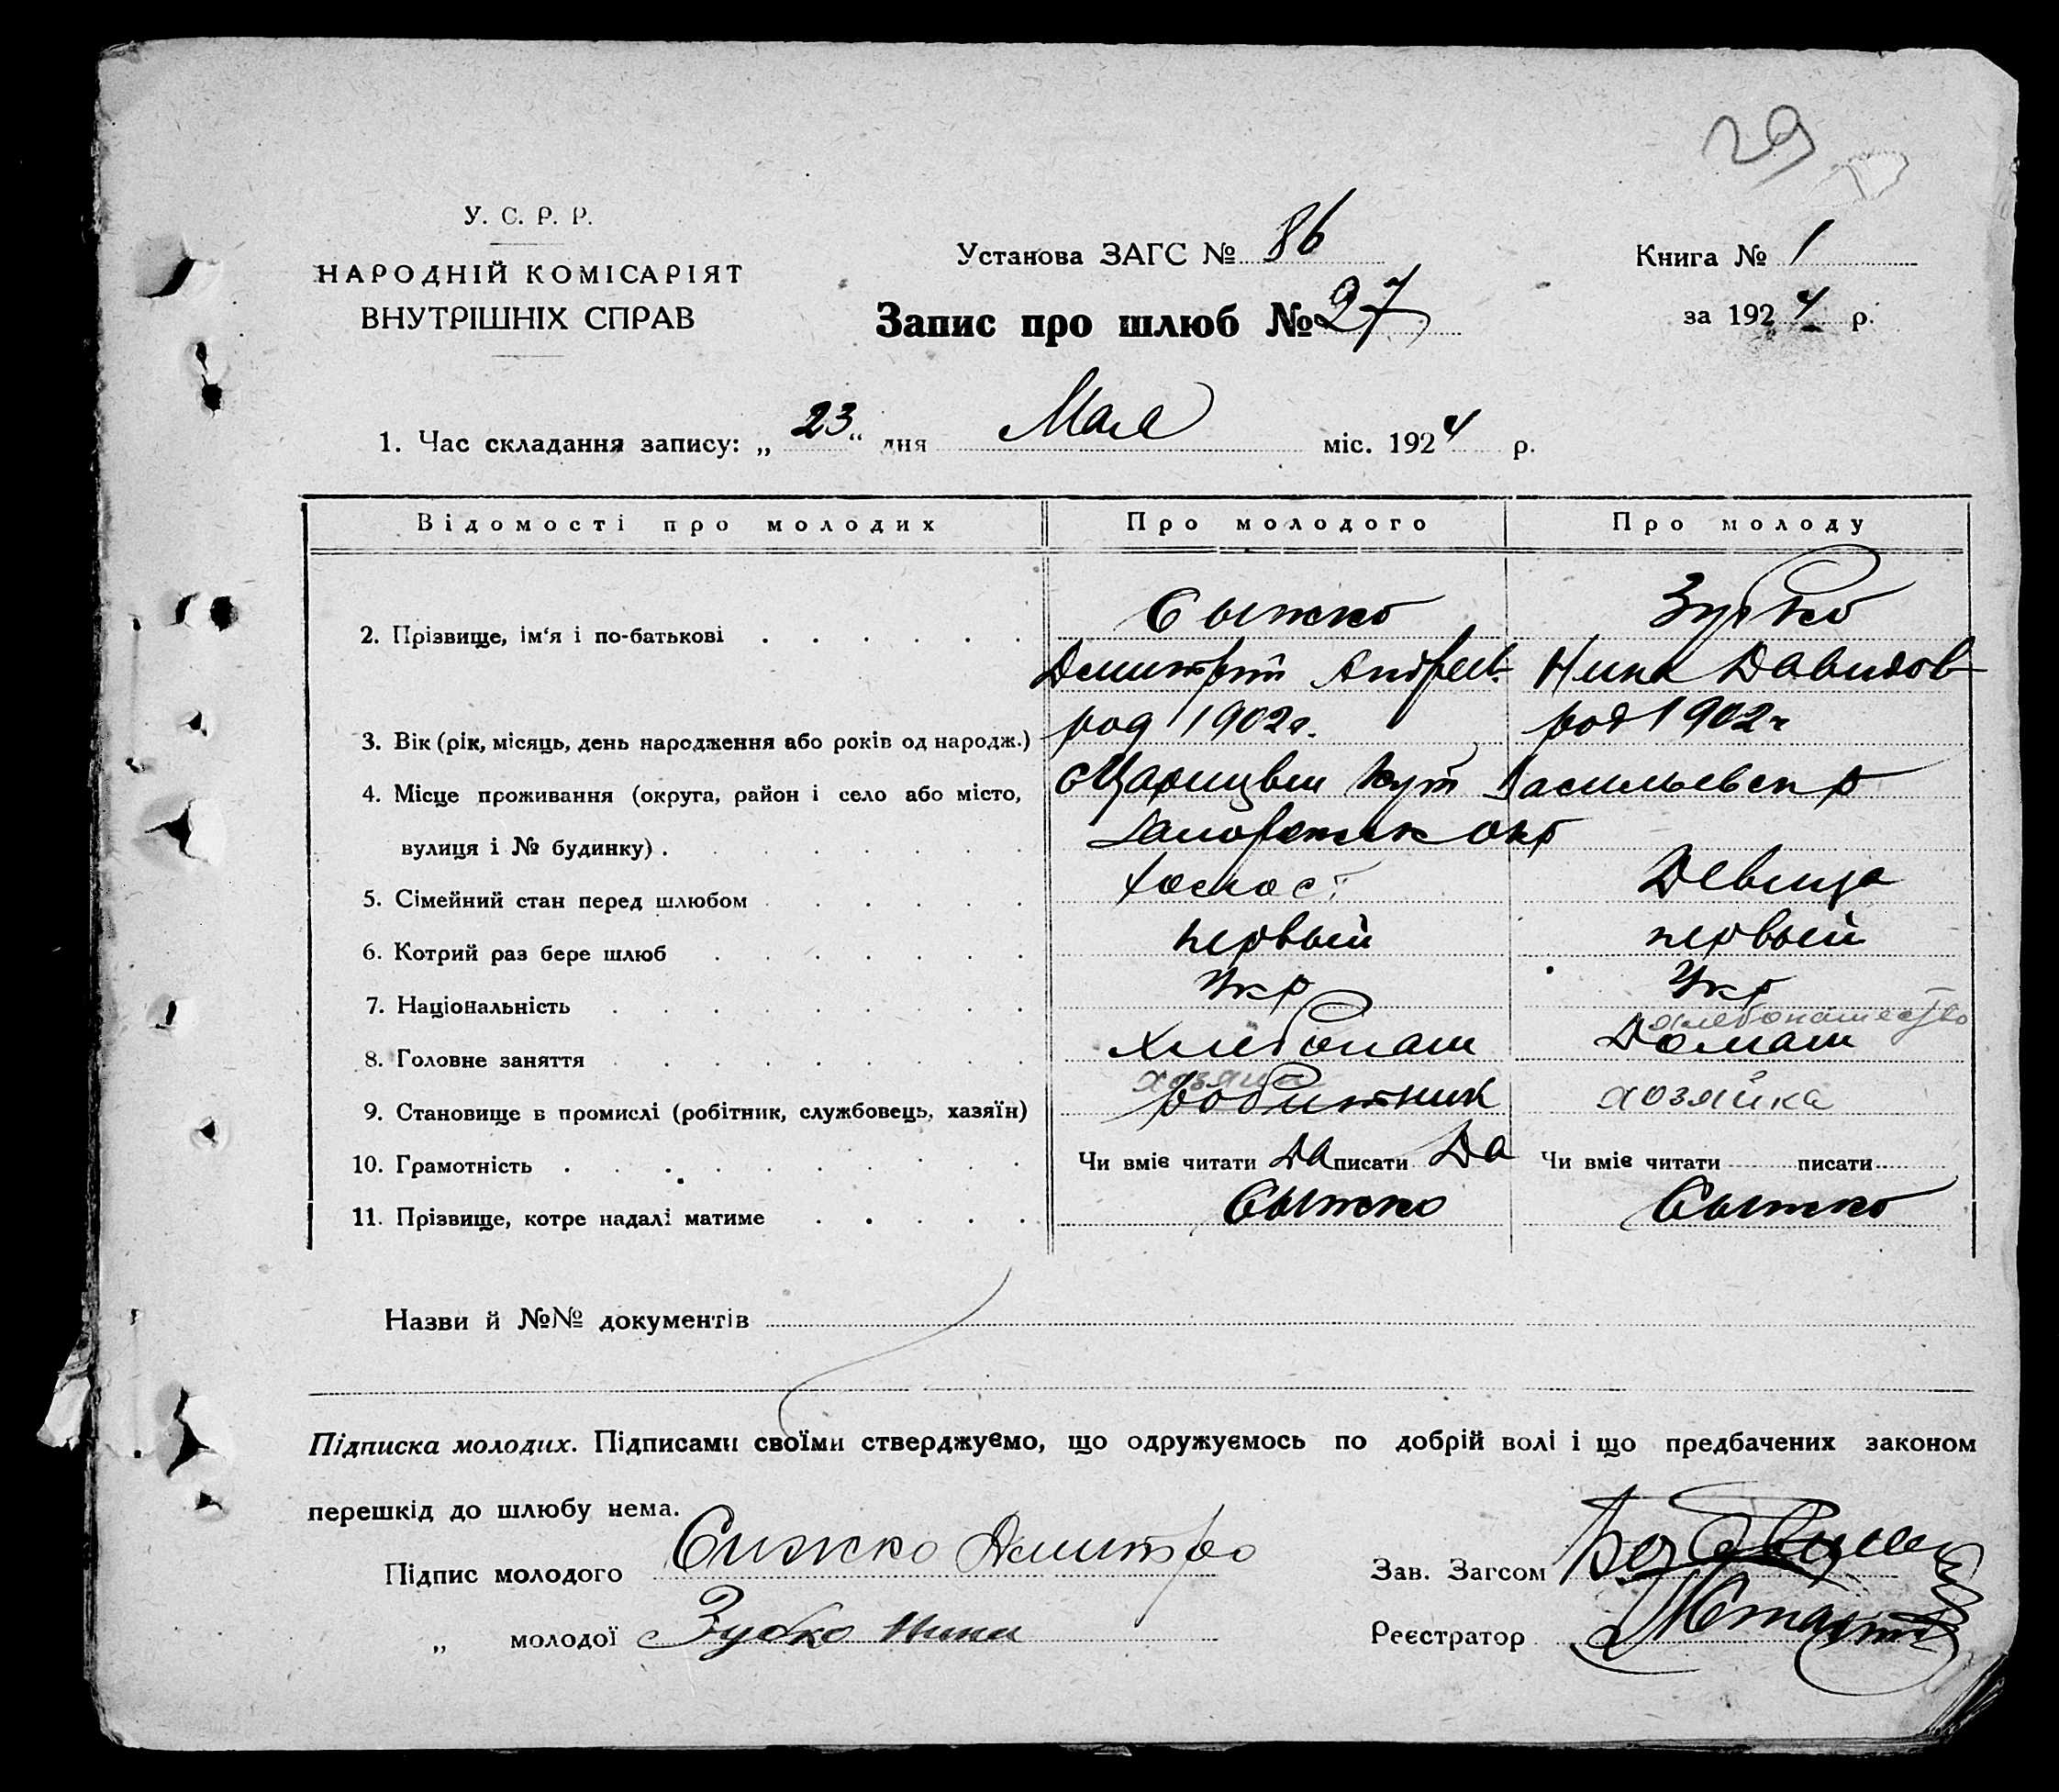 29
У. С. Р. Р.
НАРОДНІЙ КОМІСАРІЯТ
ВНУТРІШНІХ СПРАВ
Установа ЗАГС № 86
Запис про шлюб № 27
Книга № 1
за 1924 р.
1. Час складання запису: „ 23 “ дня Мая міс. 1924 р.
Відомості про молодих Про молодого Про молоду
2. Прізвище, ім‘я і по-батькові . . . . . . Сыжко Зубко
Дмитрій Андреев. Нина Давидов
3. Вік (рік, місяць, день народження або років од народж.) род 1902г. род 1902г
4. Місце проживання (округа, район і село або місто, с Царицын Кут Васильевск р
вулиця і № будинку) . . . . . . . . Запорожск окр
5. Сімейний стан перед шлюбом . . . . . . Холост Девица
6. Котрий раз бере шлюб . . . . . . . первый первый
7. Національність . . . . . . . . . Укр Укр
хлебопашество
8. Головне заняття . . . . . . . . . Хлебопаш Домаш
хозяин
9. Становище в промислі (робітник, службовець, хазяїн) робитник хозяйка
10. Грамотність . . . . . . . . . . Чи вміє читати Да писати Да Чи вміє читати писати
11. Прізвище, котре надалі матиме . . . . . Сыжко Сыжко
Назви й №№ документів
Підписка молодих. Підписами своїми стверджуємо, що одружуємось по добрій волі і що предбачених законом
перешкід до шлюбу нема.
Підпис молодого Сижко Дмитро
Зав. Загсом
„ молодої Зубко Нина
Реєстратор